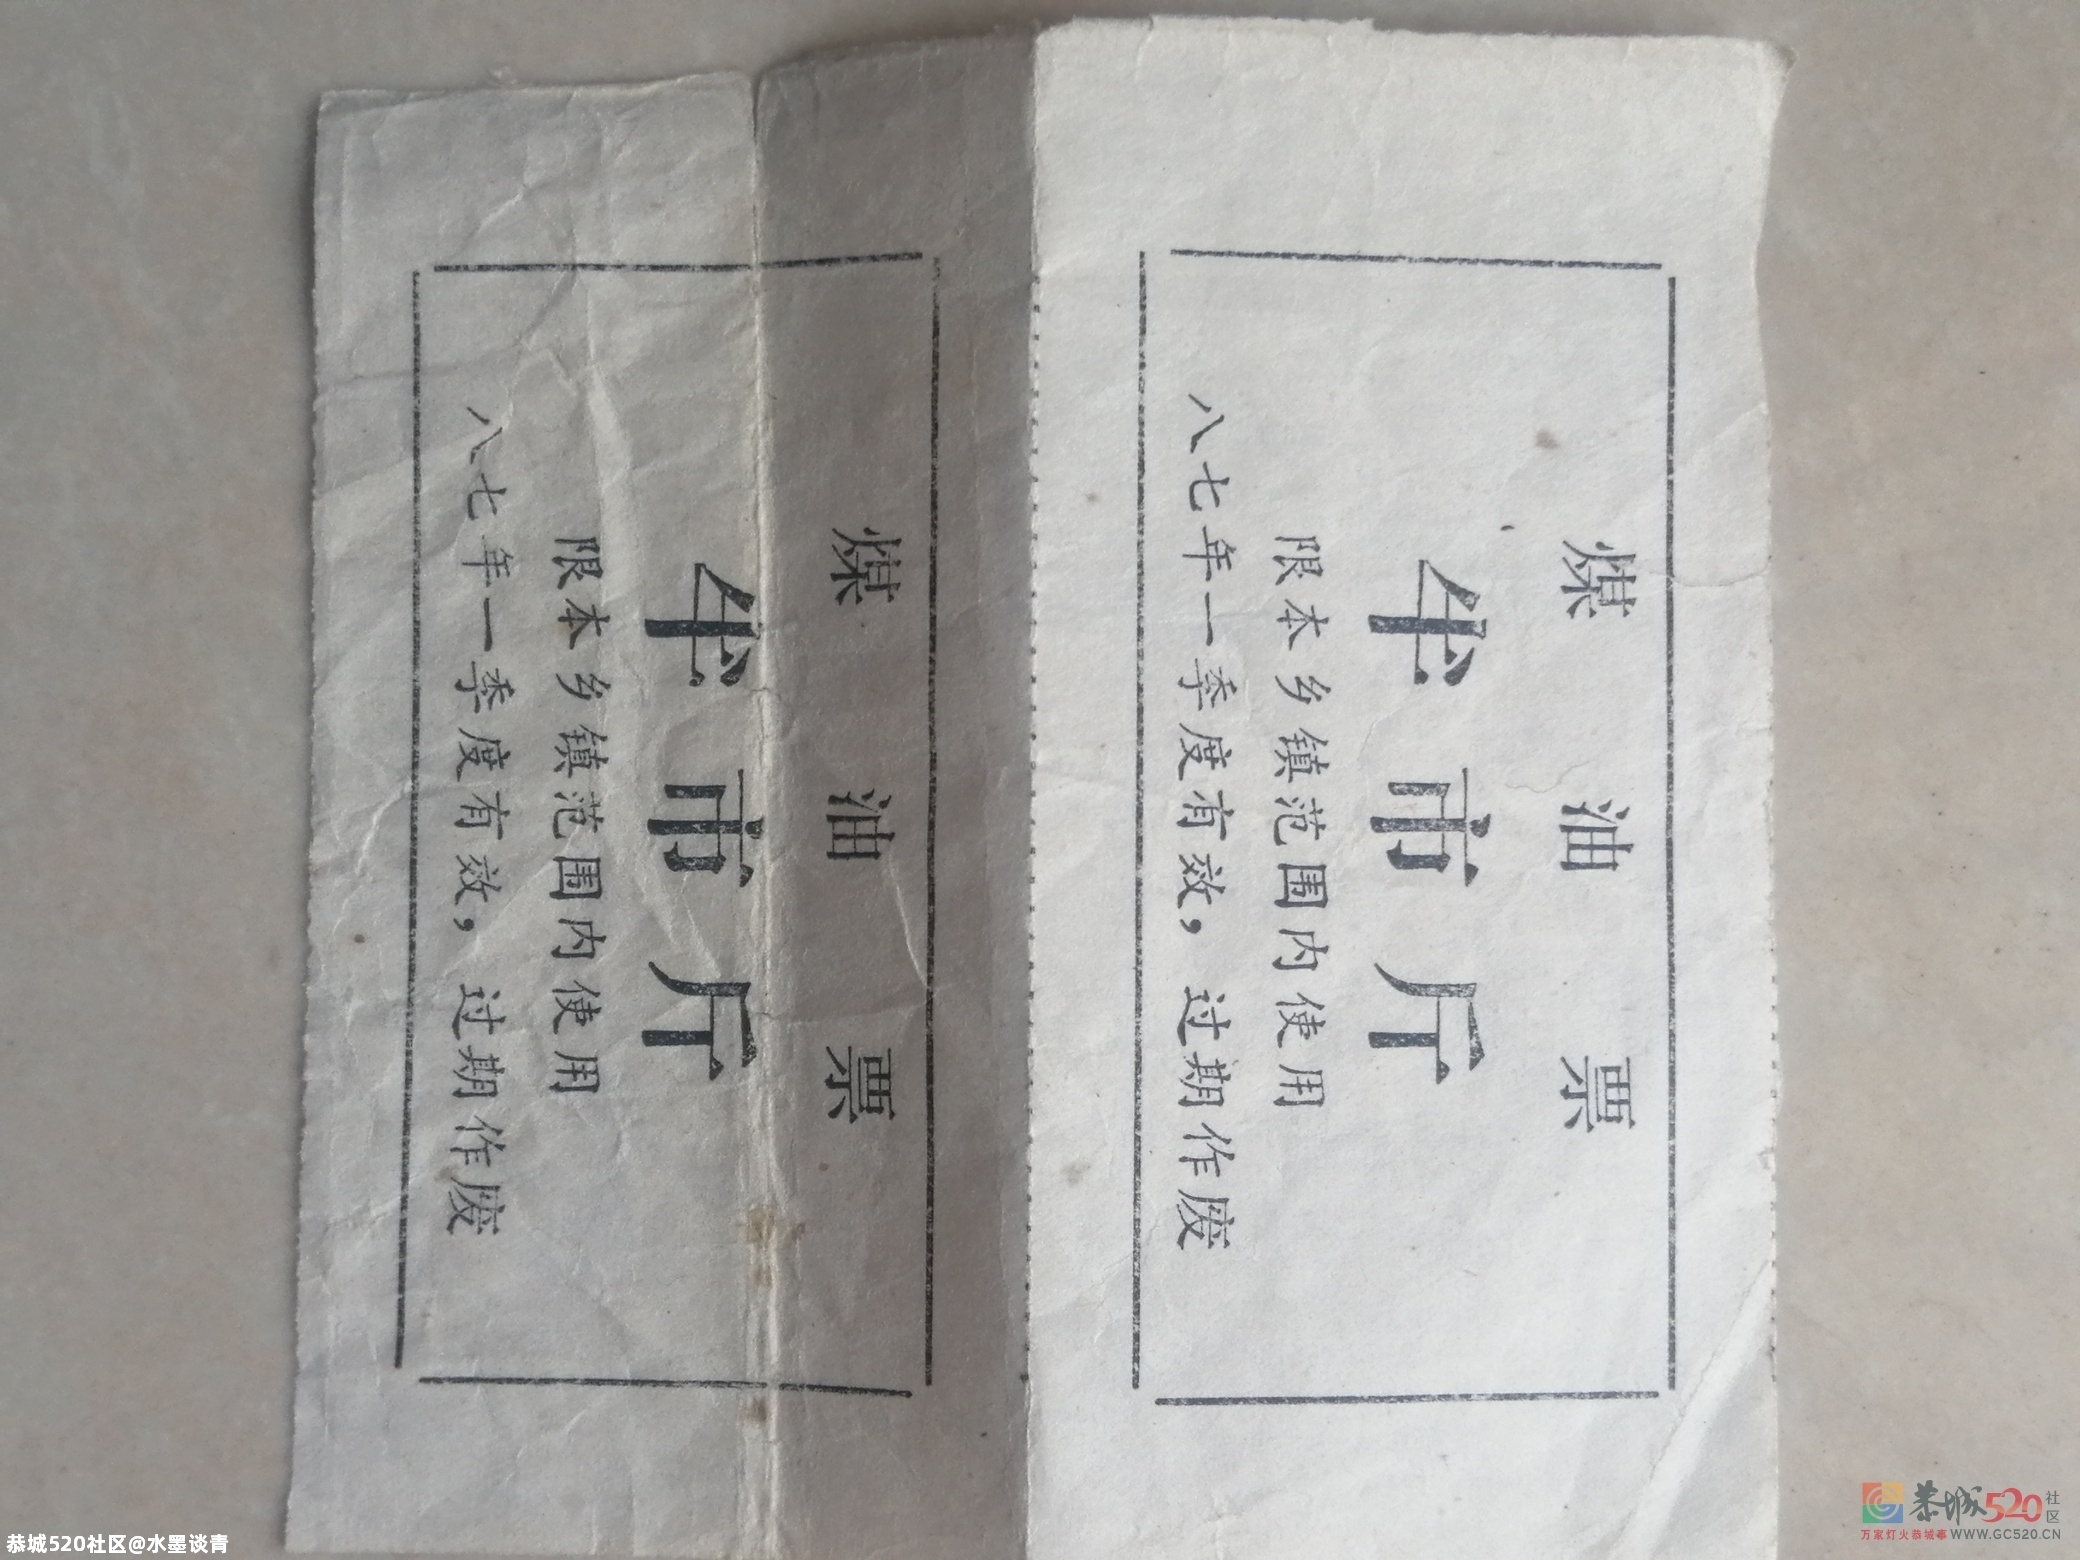 煤油票
半市斤
限本乡镇范围内使用
八七年一季度有效，过期作废
煤油票
半市斤
限本乡镇范围内使用
八七年一季度有效，过期作废
恭城520社区@水墨谈青
恭城520社区
万家灯火恭城事 WWW.GC520.CN